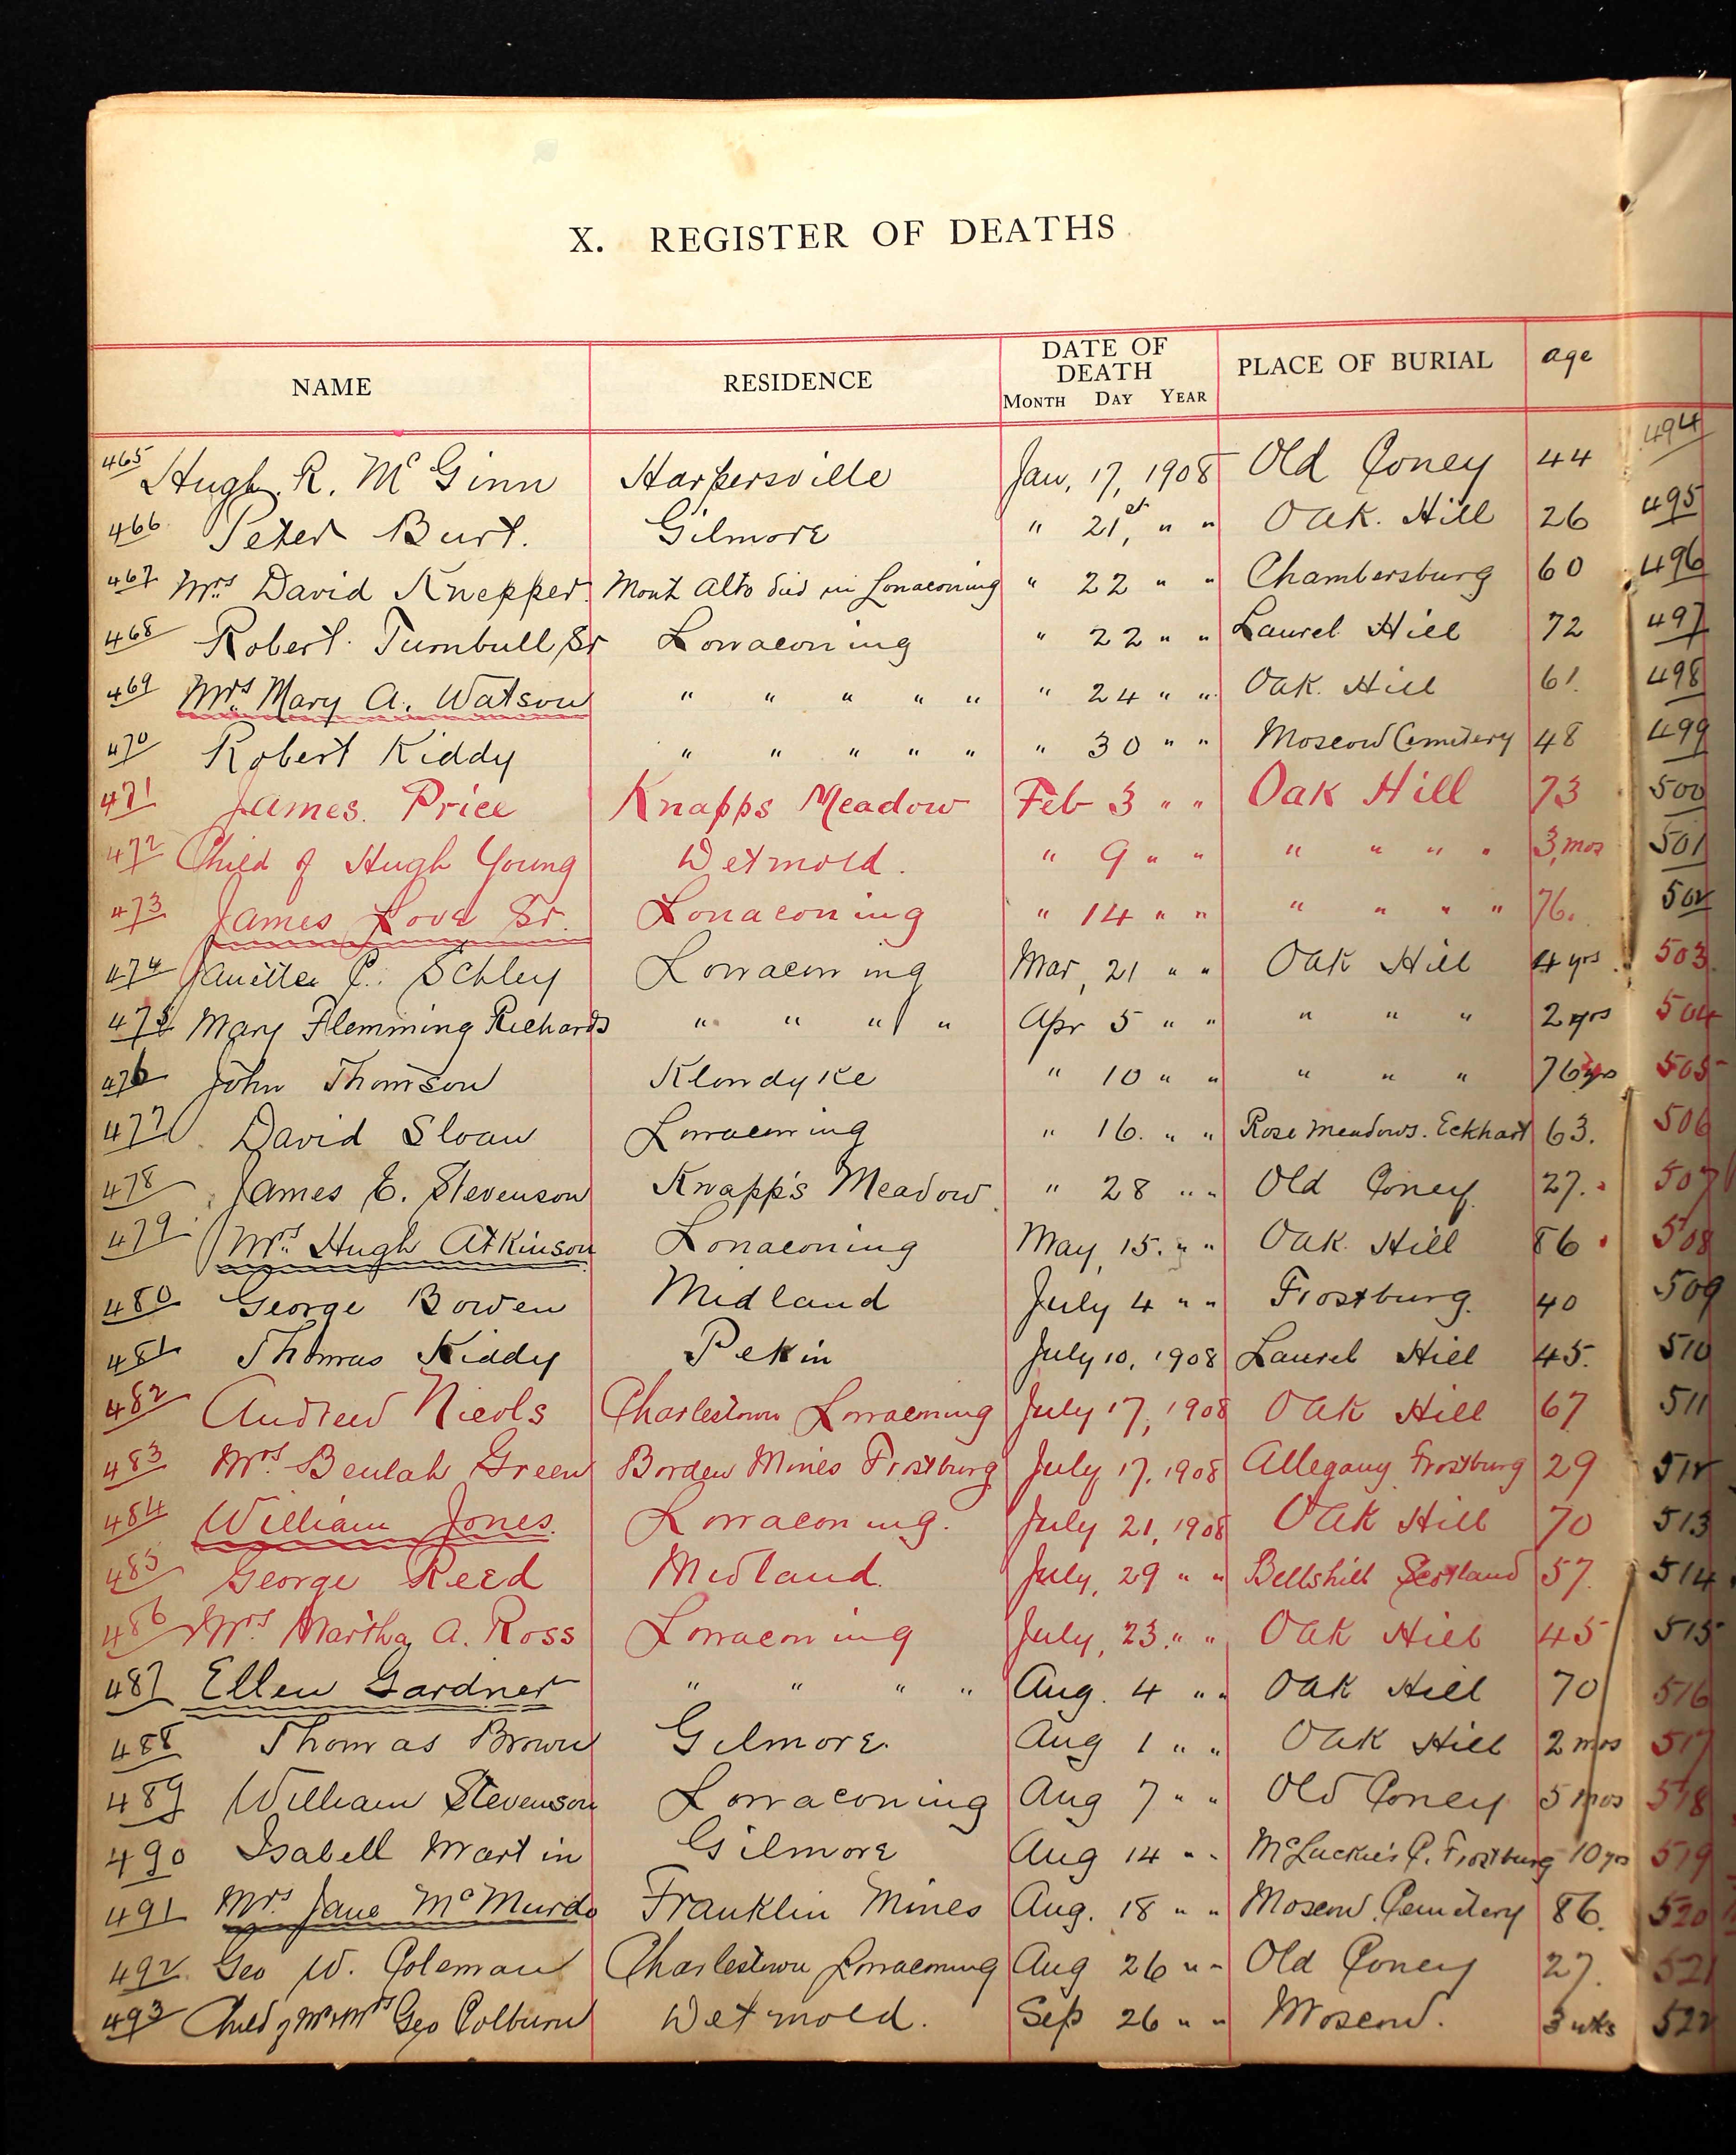 X. REGISTER OF DEATHS
NAME RESIDENCE DATE OF DEATH PLACE OF BURIAL age
MONTH DAY YEAR
465 Hugh R. McGinn Harpersville Jan, 17, 1908 Old Coney 44 494
466 Peter Burt. Gilmore " 21st, " " Oak. Hill 26 495
467 Mrs David Knepper Mont Alto died in Lonaconing " 22 " " Chambersburg 60 496
468 Robert Turnbull Sr Lonaconing " 22 " " Laurel Hill 72 497
469 Mrs. Mary A. Watson " " " " " " 24 " " Oak. Hill 61. 498
470 Robert Kiddy " " " " " " 30 " " Moscow Cemetery 48 499
471 James. Price Knapps Meadow Feb 3 " " Oak Hill 73 500
472 Child of Hugh Young Detmold. " 9 " " " " " " 3, mos 501
473 James Love Sr. Lonaconing " 14 " " " " " " 76. 502
474 C. Schley Lonaconing Mar, 21 " " Oak Hill 4 yrs 503
475 Mary Flemming Richards " " " " Apr 5 " " " " " 2 yrs 504
476 John Thomson Klondyke " 10 " " " " " 76 yrs 505
477. David Sloan Lonaconing " 16. " " Rose Meadows. Eckhart 63. 506
478 James E. Stevenson Knapp's Meadow " 28 " " Old Coney 27. 507
479 Mrs. Hugh Atkinson Lonaconing May, 15. " " Oak Hill 86 508
480 George Bowen Midland July 4 " " Frostburg. 40 509
481 Thomas Kiddy Pekin July 10, 1908 Laurel Hill 45. 510
482 Andrew Nicols Charlestown Lonaconing July 17, 1908 Oak Hill 67 511
483 Mrs. Beulah Green Borden Mines Frostburg July 17, 1908 Allegany Frostburg 29 512
484 William Jones. Lonaconing. July 21, 1908 Oak Hill 70 513
485 George Reed Midland. July, 29 " " Bellshill Scotland 57. 514
486 Mrs. Martha A. Ross Lonaconing July, 23. " " Oak Hill 45 515
487 Ellen Gardner " " " " Aug. 4 " " Oak Hill 70 516
488 Thomas Brown Gilmore. Aug 1 " " Oak Hill 2 mos 517
489 William Stevenson Lonaconing Aug 7 " " Old Coney 5 mos 518
490 Isabell Martin Gilmore Aug 14 " " McLuckie's C. Frostburg 10 yrs 519
491 Mrs. Jane McMurdo Franklin Mines Aug. 18 " " Moscow Cemetery 86. 520
492 Geo W. Coleman Charlestown Lonaconing Aug 26 " " Old Coney 27. 521
493 Child of Mr & Mrs Geo Colburn Detmold. Sep 26 " " Moscow. 3 wks 522